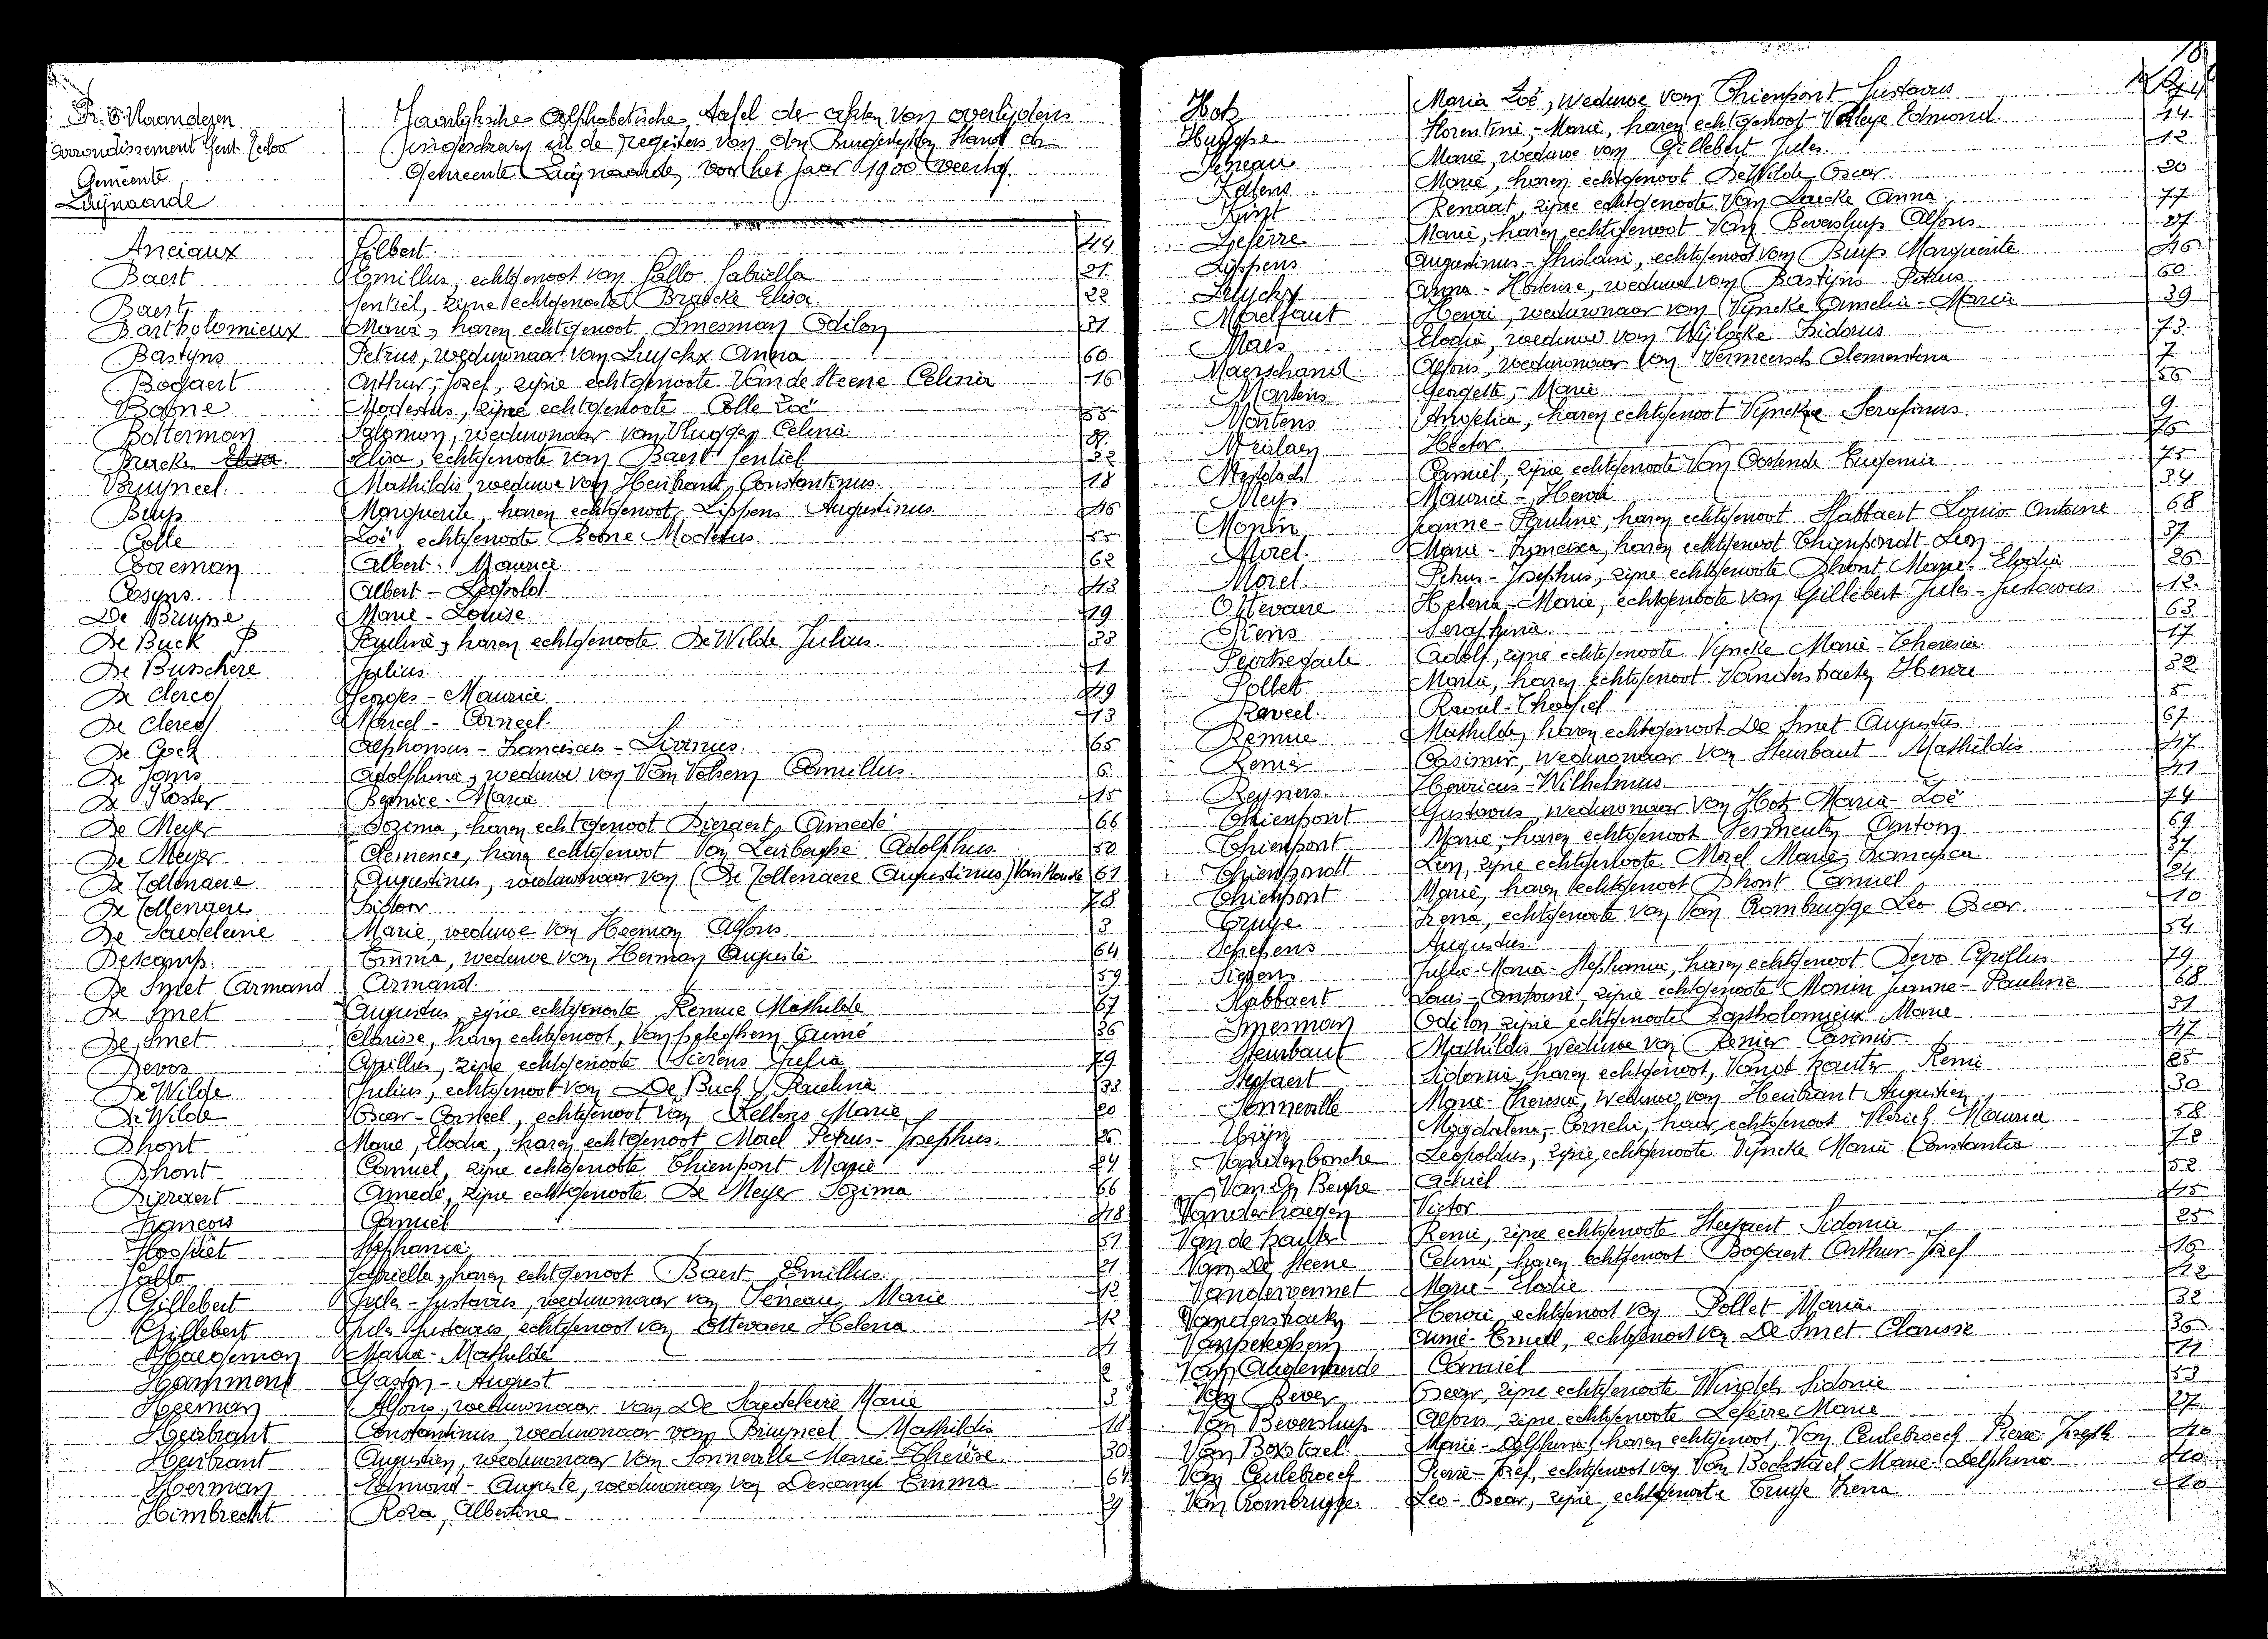 Pr. O. Vlaanderen
Arrondissement Gent-Eecloo
Gemeente
Zwijnaarde
Jaarlijksche Alphabetische tafel der akten van overlijdens
ingeschreven in de registers van den Burgerlijken Stand der
Gemeente Zwijnaarde, voor het jaar 1900 veertig.
Anciaux Gilbert 49
Baert Emillus, echtgenoot van Gallo Gabriella 21
Baert Gentiel, zijne echtgenoote Braecke Elisa 22
Bartholomieux Maria, haren echtgenoot Smesman Odilon 31
Bastyns Petrus, weduwnaar van Luyckx Anna 60
Bogaert Arthur-Jozef, zijne echtgenoote Van de Steene Celina 16
Bogne Modestus, zijne echtgenoote Colle Zoë 55
Bolterman Salomon, weduwnaar van Vlugger Celina
Braecke Elisa, echtgenoote van Baert Gentiel 22
Bruyneel Mathildis weduwe van Heibrant Constantinus 18
Buys Marguerite, haren echtgenoot Lippens Augustinus 46
Colle Zoë, echtgenoote Bogne Modestus 55
Cooreman Albert-Maurice 62
Cosyns Albert-Leopold 43
De Bruyne Marie-Louise 19
De Buck P Paulina, haren echtgenoote De Wilde Julius 33
De Busschere Julius 1
De Clercq Georges-Maurice 49
De Clercq Marcel-Corneel 13
De Cock Alphonsus-Franciscus-Livinus 65
De Jans Adolphina, weduwe van Van Volsem Camillus 6
De Koster Bernice-Maria 15
De Meyer Sozima, haren echtgenoot Dieraert Amedé 66
De Meyer Clemence, haren echtgenoot Van Leirberghe Adolphus 50
De Tollenaere Augustinus, weduwnaar van (De Tollenaere Augustinus) Van Hende 61
De Tollenaere Isidoor 78
De Saedeleire Marie, weduwe van Heeman Alfons 3
Descamps Emma, weduwe van Herman Auguste 64
De Smet Armand Armand 59
De Smet Augustus, zijne echtgenoote Remue Mathilde 67
De Smet Clarisse, haren echtgenoot, Van peteghem Aumé 36
Devos Cyrillus, zijne echtgenoote Sierens Julia 79
De Wilde Julius, echtgenoot van De Buck Paulina 33
De Wilde Oscar-Corneel, echtgenoot van Kellens Marie 20
Dhont Marie, Elodia, haren echtgenoot Morel Petrus-Josephus 26
Dhont Camiel, zijne echtgenoote Thienpont Marie 24
Dieraert Amedé, zijne echtgenoote De Meyer Sozima 66
Francois Camiel 48
Goodiet Stephanie 51
Gallo Gabriella, haren echtgenoot Baert Emillus 21
Gillebert Jules-Gustavus, weduwnaar van Seneau Marie 12
Gillebert Jules Gustavus echtgenoot van Ottevaere Helena 12
Haegeman Maria-Mathilde 4
Hamment Gaston-August 2
Heeman Alfons, weduwnaar van De Saedeleire Marie 3
Heibrant Constantinus weduwnaar van Bruyneel Mathildis 18
Heibrant Augustien, weduwnaar van Sonneville Marie-Therèse 30
Herman Edmond-Auguste, weduwnaar van Descamps Emma 64
Himbrecht Roza, Albertine 29
Hotz Maria Zoë, weduwe van Thienpont Gustavus 74
Huyghe Florentine-Marie, haren echtgenoot Volleye Edmond 14
Seneau Marie, weduwe van Gillebert Jules 12
Kellens Marie, haren echtgenoot De Wilde Oscar 20
Kint Renaat, zijne echtgenoote Van Laecke Anna 77
Lefèvre Marie, haren echtgenoot Van Beversluys Alfons 27
Lippens Augustinus-Ghislain, echtgenoot van Buys Marguerite 46
Luyckx Anna-Hortense, weduwe van Bastyns Petrus 60
Moelfaut Henri, weduwnaar van Vyncke Amelia-Maria 39
Maes Elodia, weduwe van Wijlocke Isidorus 73
Maerschand Alfons, weduwnaar van Vermeersch Clementina 7
Martens Georgette-Marie 56
Martens Angelica, haren echtgenoot Vyncke Serafinus 9
Meulaen Hector 76
Camiel, zijne echtgenoote Van Oostende Eugenie 75
Meys Maurice-Henri 34
Monin Jeanne-Pauline, haren echtgenoot Slabbaert Louis-Antoine 68
Morel Marie-Francisca, haren echtgenoot Thienpondt Leon 37
Morel Petrus-Josephus, zijne echtgenoote Dhont Marie-Elodia 26
Ottevaere Helena-Marie, echtgenoote van Gillebert Jules-Gustavus 12
Piens Seraphina 63
Adolf, zijne echtgenoote Vyncke Marie-Theresia 17
Pollet Maria, haren echtgenoot Vanderstraeten Henri 32
Raveel Raoul-Theofiel 5
Remue Mathilde, haren echtgenoot De Smet Augustus 67
Renier Casimir, weduwnaar van Steurbaut Mathildis 47
Reyners Henricus-Wilhelmus 41
Thienpont Gustavus, weduwnaar van Hotz Maria-Zoë 74
Thienpont Marie, haren echtgenoot Vermeulen Antoon 69
Thienpondt Leon, zijne echtgenoote Morel Marie-Francisca 37
Thienpont Marie, haren echtgenoot Dhont Camiel 24
Truye Irena, echtgenoote van Van Rombrugge Leo Oscar 10
Schepens Augustus 54
Sierens Julia-Maria-Stephania, haren echtgenoot Devos Cyrillus 79
Slabbaert Louis-Antoine, zijne echtgenoote Monin Jeanne-Pauline 68
Smesman Odilon, zijne echtgenoote Bartholomieux Marie 31
Steurbaut Mathildis weduwe van Renier Casimir 47
Steyaert Sidonia, haren echtgenoot, Van de Hauter Remi 25
Sonneville Marie-Theresia, weduwe van Heibrant Augustien 30
Magdalena-Cornelia, haar echtgenoot Maurice 58
Vandenbosche Leopoldus, zijne echtgenoote Vyncke Marie Constantia 72
Van Den Berghe Achiel 52
Vanderhaegen Victor 45
Van de Hauter Remi, zijne echtgenoote Steyaert Sidonia 25
Van De Steene Celina, haren echtgenoot Bogaert Arthur-Jozef 16
Vandervennet Marie-Elodie 42
Vanderstraeten Henri, echtgenoot van Pollet Maria 32
Vanpeteghem Aumé-Emiel, echtgenoot van De Smet Clarisse 36
Van Audenaerde Camiel 11
Van Bever Oscar, zijne echtgenoote Sidonie 53
Van Beversluys Alfons, zijne echtgenoote Lefèvre Marie 27
Van Boxstael Marie-Delphina, haren echtgenoot, Van Ceulebroeck Pierre Joseph 40
Van Ceulebroeck Pierre-Jozef, echtgenoot van Van Bockstael Marie-Delphina 40
Van Rombrugge Leo-Oscar, zijne echtgenoote Truye Irena 10